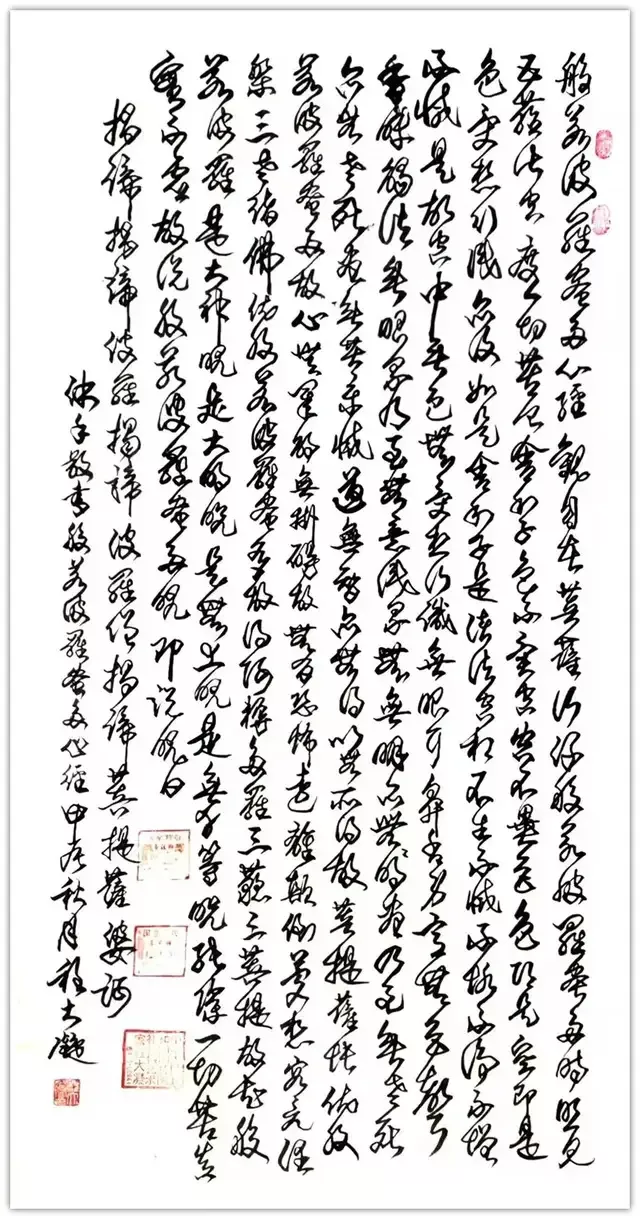 般若波羅蜜多心經觀自在菩薩行深般若波羅蜜多時照見
五蘊皆空度一切苦厄舍利子色不異空空不異色色即是空空即是
色受想行識亦復如是舍利子是諸法空相不生不滅不垢不淨不增
不減是故空中無色無受想行識無眼耳鼻舌身意無色聲
香味觸法無眼界乃至無意識界無無明亦無無明盡乃至無老死
亦無老死盡無苦集滅道無智亦無得以無所得故菩提薩埵依般
若波羅蜜多故心無罣礙無掛礙故無有恐怖遠離顛倒夢想究竟涅
槃三世諸佛依般若波羅蜜多故得阿耨多羅三藐三菩提故知般
若波羅是大神呪是大明呪是無上呪是無等等呪能除一切苦真
實不虛故說般若波羅蜜多呪即說呪曰
揭諦揭諦波羅揭諦波羅僧揭諦菩提薩婆訶
敬書般若波羅蜜多心經秋月程大